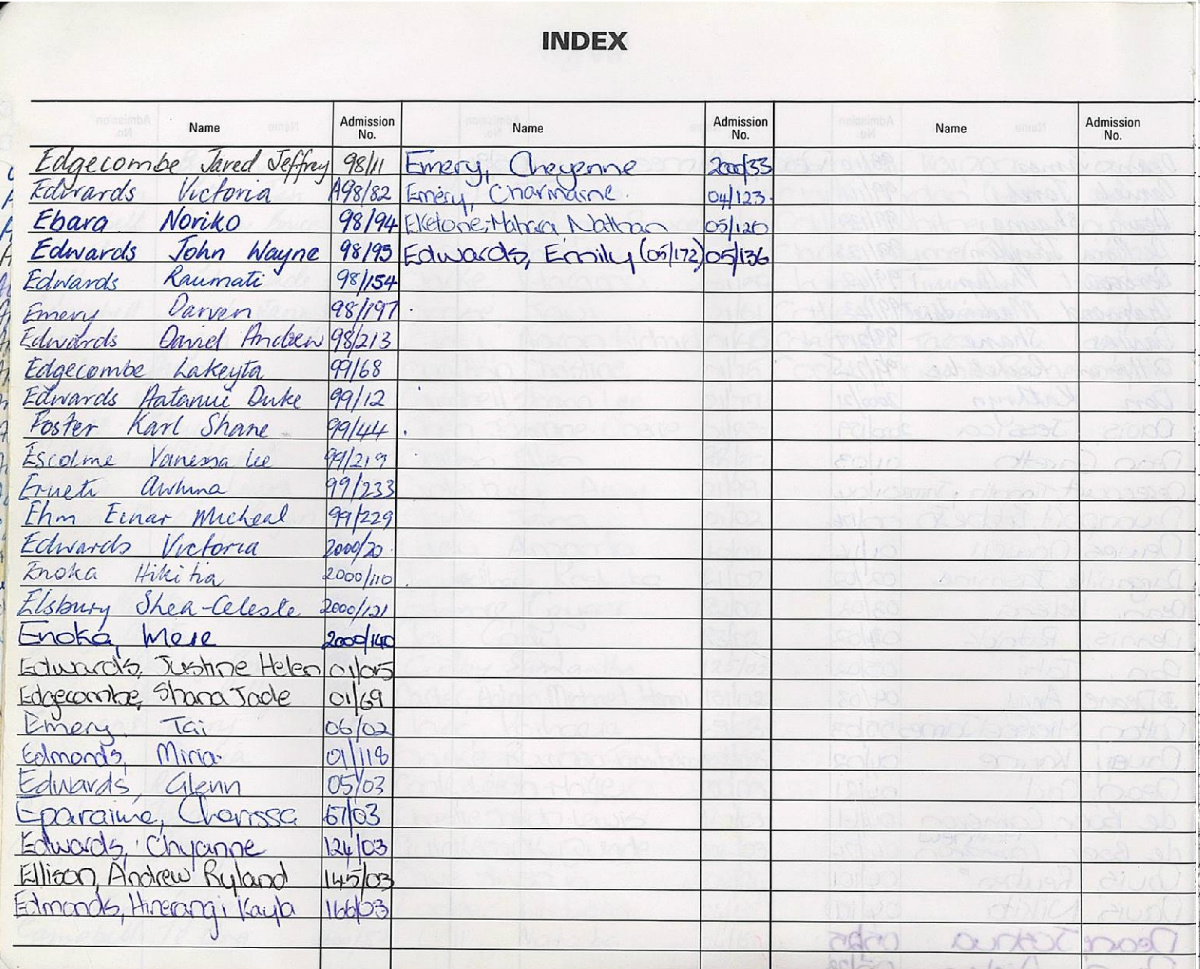 INDEX
Name Admission No. Name Admission No. Name Admission No.
Edgecombe Jared Jeffrey 98/11
Edwards Victoria A98/82
Ebara Noriko 98/94
Edwards John Wayne 98/95
Edwards Raumati 98/154
Emery Darven 98/197
Edwards David Andrew 98/213
Edgecombe Lakeyta 99/68
Edwards Aatanui Duke 99/12
Foster Karl Shane 99/44
Escolme Vanessa Lee 99/219
Erueti Awhina 99/233
Ehm Einar Micheal 99/229
Edwards Victoria 2000/20
Enoka Hikitia 2000/110
Elsbury Shea-Celeste 2000/121
Enoka, Mere 2000/140
Edwards, Justine Helen 01/
Edgecombe, Shana Jade 01/69
Emery Tai 06/02
Edmonds, Miria 01/118
Edwards, Glenn 05/03
Eparaima, Charissa 67/03
Edwards, Chyanne 124/03
Ellison, Andrew Ryland 145/03
Edmonds, Hinerangi Kayla 166/03
Emery, Cheyenne 2000/33
Emery, Charmaine. 04/123
Eketone, Nathan 05/120
Edwards, Emily (05/172) 05/136